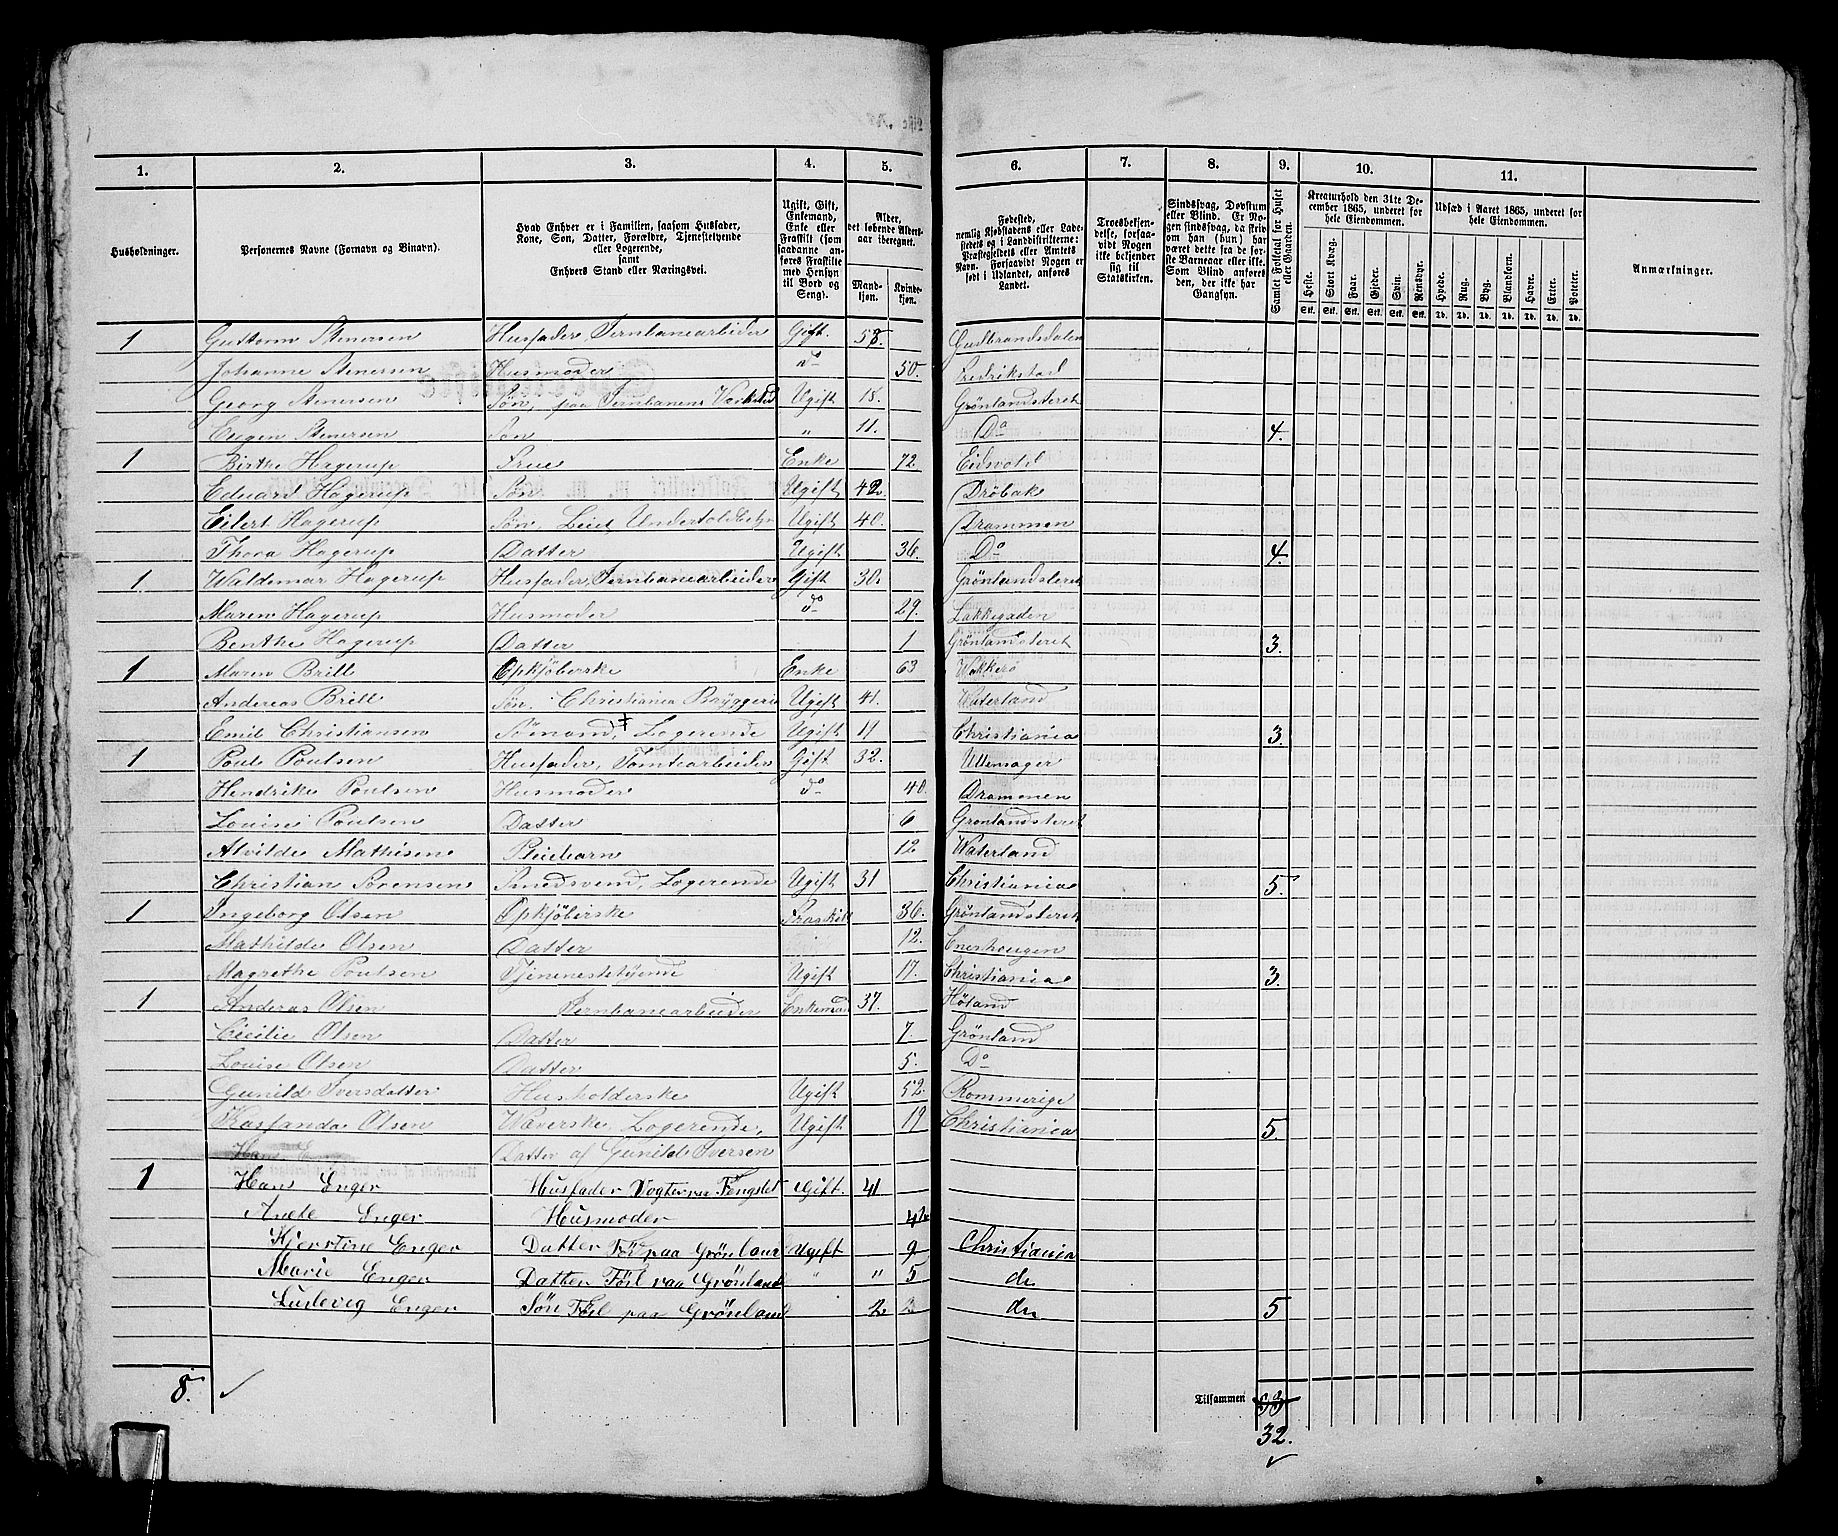 1. 2. 3. 4. 5. 6. 7. 8. 9. 10. 11.
Husholdninger.
Personernes Navne (Fornavn og Binavn).
Hvad Enhver er i Familien, saasom Husfader,
Kone, Søn, Datter, Forældre, Tjenestetyende
eller Logerende,
samt
Enhvers Stand eller Næringsvei.
Ugift, Gift,
Enkemand,
Enke eller
Fraskilt (som
saadanne an-
føres Fraskilte
med Hensyn
til Bord og
Seng).
Alder,
det løbende Alders-
aar iberegnet.
Mand-
kjøn.
Kvinde-
kjøn.
Fødested,
nemlig Kjøbstadens eller Lade-
stedets og i Landdistrikterne:
Præstegjeldets eller Amtets
Navn. Forsaavidt Nogen er
født i Udlandet, anføres
Landet.
Troesbekjen-
delse, forsaa-
vidt Nogen
ikke bekjender
sig til
Statskirken.
Sindssvag, Døvstum
eller Blind. Er No-
gen sindssvag, da skriv
om han (hun) har
været dette fra de før-
ste Barneaar eller ikke.
Som Blind anføres
den, der ikke har
Gangsyn.
Samlet Folketal for Huset
eller Gaarden.
Kreaturhold den 31te De-
cember 1865, underet for
hele Eiendommen.
Heste. Stort Kvæg. Faar. Gjeder. Svin. Rensdyr.
Stk. Stk. Stk. Stk. Stk. Stk.
Udsæd i Aaret 1865, underet for
hele Eiendommen.
Hvede. Rug. Byg. Blandkorn. Havre. Erter. Poteter.
Td. Td. Td. Td. Td. Td. Td.
Anmærkninger.
1 Guttorm Stenersen Husfader, Jernbanearbeider Gift. 58. Gudbrandsdalen
Johanne Stenersen Husmoder do 50. Fredrikstad
Georg Stenersen Søn, paa Jernbanens Værksted Ugift 18. Grönlandsleret
Eugen Stenersen Søn " 11. Do 4.
1 Birthe Hagerup Frue Enke 72 Eidsvold
Eduard Hagerup Søn Ugift 42. Dröbak
Eilert Hagerup Søn, Ugift 40. Drammen
Thora Hagerup Datter Ugift 36. Do 4.
1 Waldemar Hagerup Husfader, Jernbanearbeider Gift 30. Grönlandsleret
Maren Hagerup Husmoder do 29. Lakkegaden
Benthe Hagerup Datter 1 Grönlandsleret 3.
1 Maren Brill Opkjøberske Enke 63 Wækkerø
Andreas Brill Søn, Christiania Bryggeri Ugift 41. Waterland
Emil Christiansen Sømand, Logerende Ugift 19 Christiania 3.
1 Poul Poulsen Husfader, Tomtearbeider Gift 32. Ullensager
Hendrike Poulsen Husmoder do 40. Drammen
Louise Poulsen Datter 6 Grønlandsleret
Alvilde Mathisen Pleiebarn 12 Waterland
Christian Sørensen Smedsvend, Logerende Ugift 31 Christiania 5.
1 Ingeborg Olsen Opkjøberske Fraskilt 36. Grönlandsleret
Mathilde Olsen Datter 12. Enerhougen
Magrethe Poulsen Tjenestetyende Ugift 17. Christiania 3.
1 Anderas Olsen Jernbanearbeider Enkemand 37. Høland
Cecilie Olsen Datter 7. Grönland
Louise Olsen Datter 5. Do
Gunild Iversdatter Husholderske Ugift 52. Rommerige
Olsen Logerende, Ugift 19 Christiania 5.
Hans Datter af Gunild Iversen
1 Hans Enger Husfader Vogter Fengslet Gift. 41
Anete Enger Husmoder 42
Kjerstine Enger Datter Föd paa Grönland Ugift 9 Christiania
Marie Enger Datter Föd paa Grönland " " 5 do
Ludevig Enger Søn Föd paa Grönland 2 do 5
8. ✓
Tilsammen 33
32.
✓